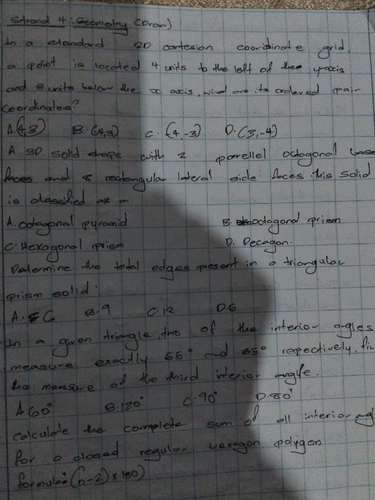 Strand 4: Geometry (Draw)
In a standard 2D cartesian coordinate grid,
a point is located 4 units to the left of the y-axis
and 3 units below the x axis, what are its ordered pair
coordinates?
A. (4,3) B. (4,3) C. (4,-3) D. (3,-4)
A 3D solid shape with 2 parellel octagonal base
faces and 8 rectangular lateral side faces. this solid
is classified as a
A. octagonal pyramid B. octagonal prism
C. Hexagonal prism D. Decagon.
Determine the total edges present in a triangular
prism solid.
A. C B. 9 C. 12 D. 6
In a given triangle, two of the interior angles
measure exactly and respectively, fi
the measure of the third interior angle.
A. 60° B. 120° C. 90° D. 80°
Calculate the complete sum of all interior
for a closed regular hexagon polygon
formula: (n-2) x 180